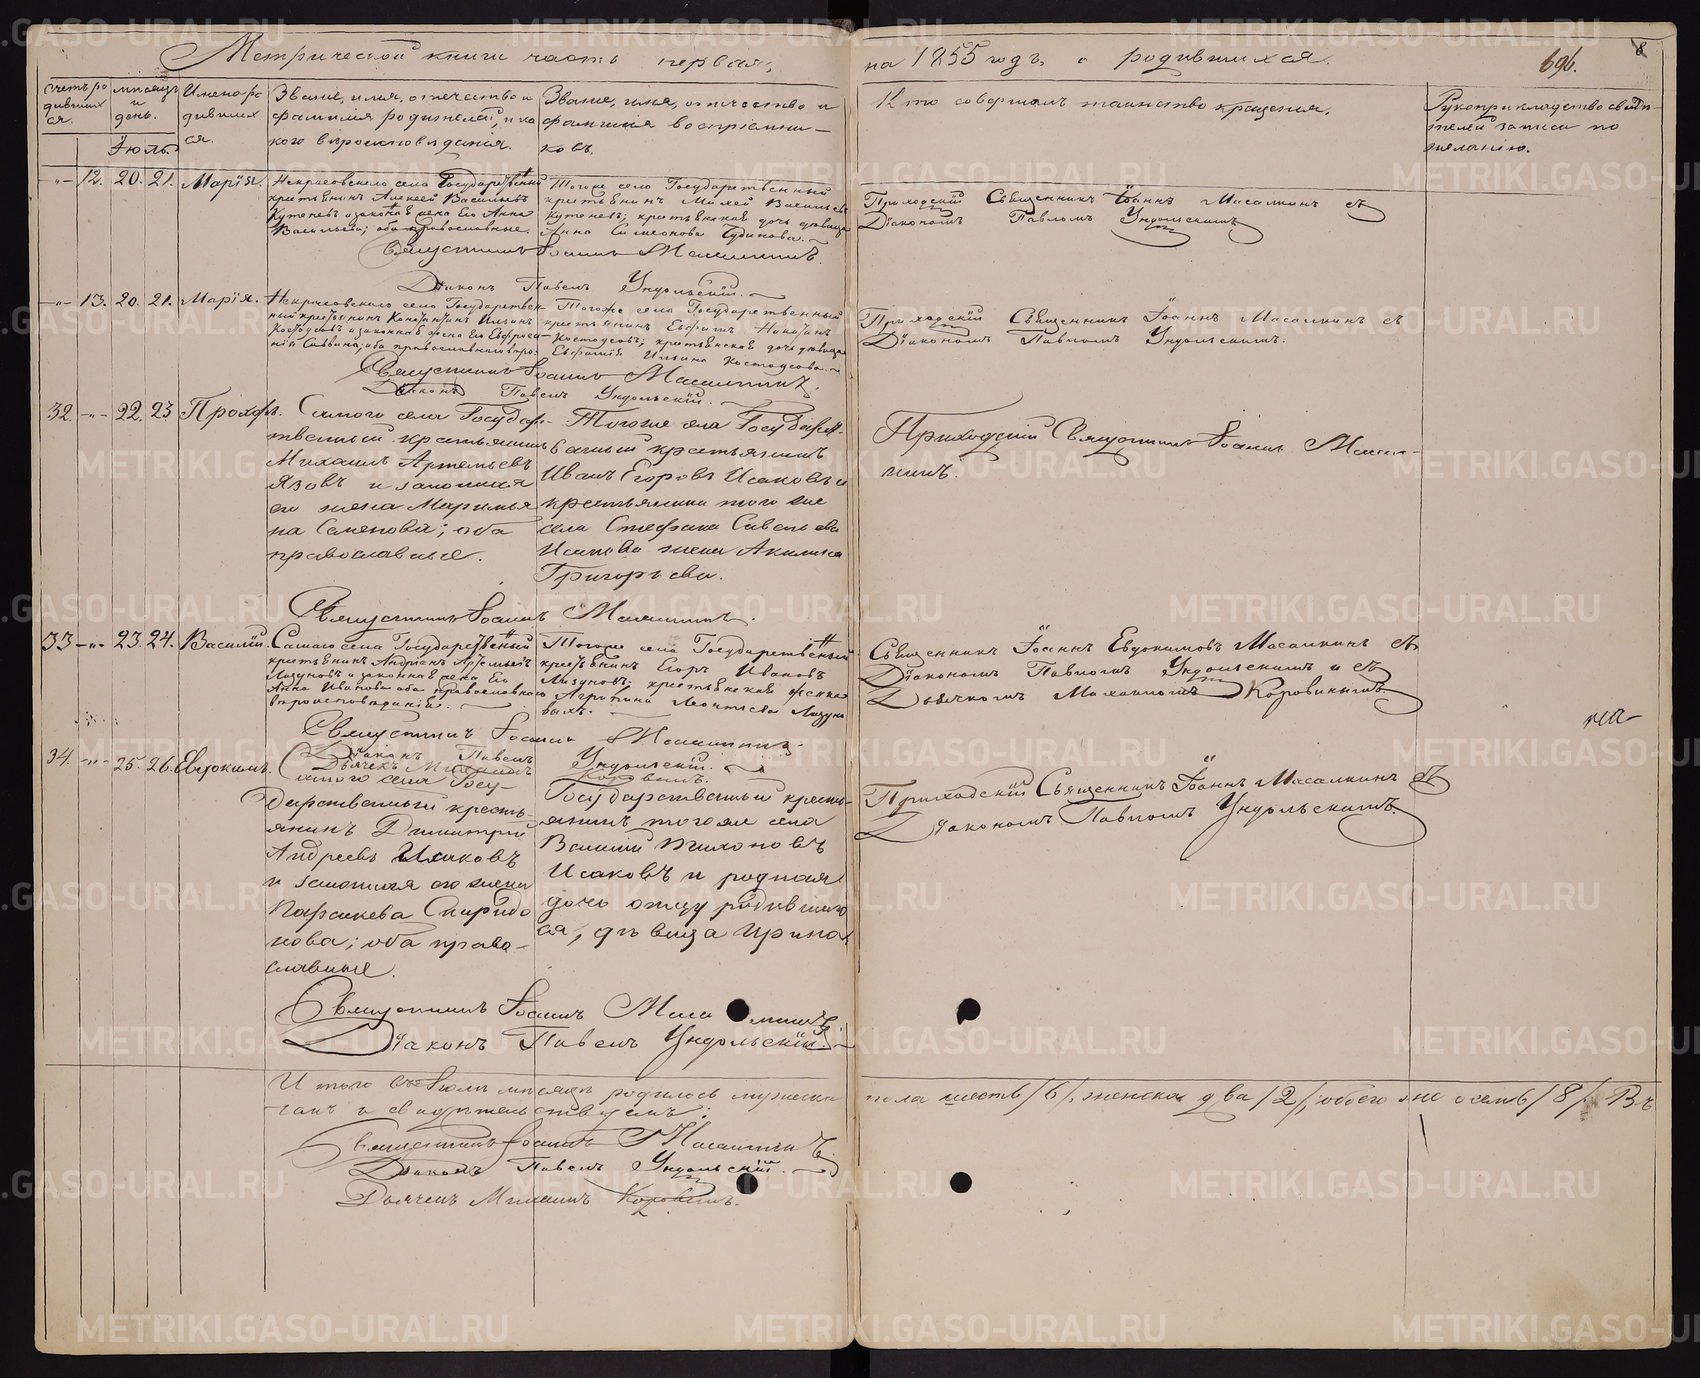 Метрической книги часть первая, на 1855 годъ, о родившихся.
696.
8
Счетъ родившихся.
мѣсяцъ и день.
Июль.
Имена родившихся.
Званіе, имя, отчество и
фамилія родителей, и ка
кого вѣроисповѣданія.
Званіе, имя, отчество и
фамилія воспріемни-
ковъ.
Кто совершалъ таинство крещенія.
Рукоприкладство свидѣ-
телей записи по
желанію.
-"- 12. 20. 21. Марія.
Некрасовскаго села Государственный
крестьянинъ Алексей Васильевъ
Кутеневъ и законная жена Его Анна
Васильева; оба православные.
Тогоже села Государственный
крестьянинъ Васильевъ
Кутеневъ; крестьянская дочь дѣвица
Анна Симеонова
Приходскій Священникъ Іоаннъ Масалкинъ съ
Діакономъ Павломъ Ундольскимъ
Священникъ Іоаннъ Масалкинъ.
Діаконъ Павелъ Ундольскій.
-"- 13. 20. 21. Марія.
Некрасовскаго села Государствен
ный крестьянинъ Константинъ Ильинъ
Костоусовъ и законная жена Его Евфроси-
нія Саввина; оба православнаго
Тогоже села Государственный
крестьянинъ Евфимъ
Костоусовъ; крестьянская дочь дѣвица
Евфимія Ильина Костоусова.
Приходскій Священникъ Іоаннъ Масалкинъ съ
Діакономъ Павломъ Ундольскимъ.
Священникъ Іоаннъ Масалкинъ.
Діаконъ Павелъ Ундольскій.
32. -"- 22. 23. Прохоръ.
Самаго села Государ-
твенный крестьянинъ
Михаилъ Артемьевъ
Язовъ и законная
его жена Маримья
на Семенова; оба
православные.
Тогоже села Государст-
венный крестьянинъ
Иванъ Егоровъ Исаковъ и
крестьянина того же
села Стефана Савельева
Исакова жена Акилина
Григорьева.
Приходскій Священникъ Іоаннъ Масал-
кинъ.
Священникъ Іоаннъ Масалкинъ.
33 -"- 23. 24. Василій.
Самаго села Государственный
крестьянинъ Андріанъ Артемьевъ
Лизуновъ и законная жена Его
Анна Иванова оба православнаго
вѣроисповѣданія.
Тогоже села Государственный
крестьянинъ Егоръ Ивановъ
Лизуновъ; крестьянская женка
Агрипина Леонтьева Лизуно
выхъ.
Священникъ Іоаннъ Евдокимовъ Масалкинъ съ
Діакономъ Павломъ Ундольскимъ и съ
Дьячкомъ Михаиломъ Коровинымъ
Священникъ Іоаннъ Масалкинъ
Діаконъ Павелъ Ундольскій.
Дьячекъ Михаилъ Коровинъ.
34. -"- 25. 26. Евдокимъ.
Самого села Госу-
дарственный кресть-
янинъ Димитрій
Андреевъ Исаковъ
и законная его жена
Параскева Спиридо
нова; оба право-
славные.
Государственный кресть-
янинъ тогоже села
Василій Тихоновъ
Исаковъ и родная
дочь отцу родившаго
ся, дѣвица Ирина.
Приходскій Священникъ Іоаннъ Масалкинъ съ
Діакономъ Павломъ Ундольскимъ.
Священникъ Іоаннъ Масалкинъ
Діаконъ Павелъ Ундольскій.
Итого въ Іюлѣ мѣсяцѣ родилось мужеска пола шесть /6/, женска два /2/, обоего же осемь /8/. Въ
чемъ и свидѣтельствуемъ:
Священникъ Іоаннъ Масалкинъ.
Діаконъ Павелъ Ундольскій.
Дьячекъ Михаилъ Коровинъ.
METRIKI.GASO-URAL.RU